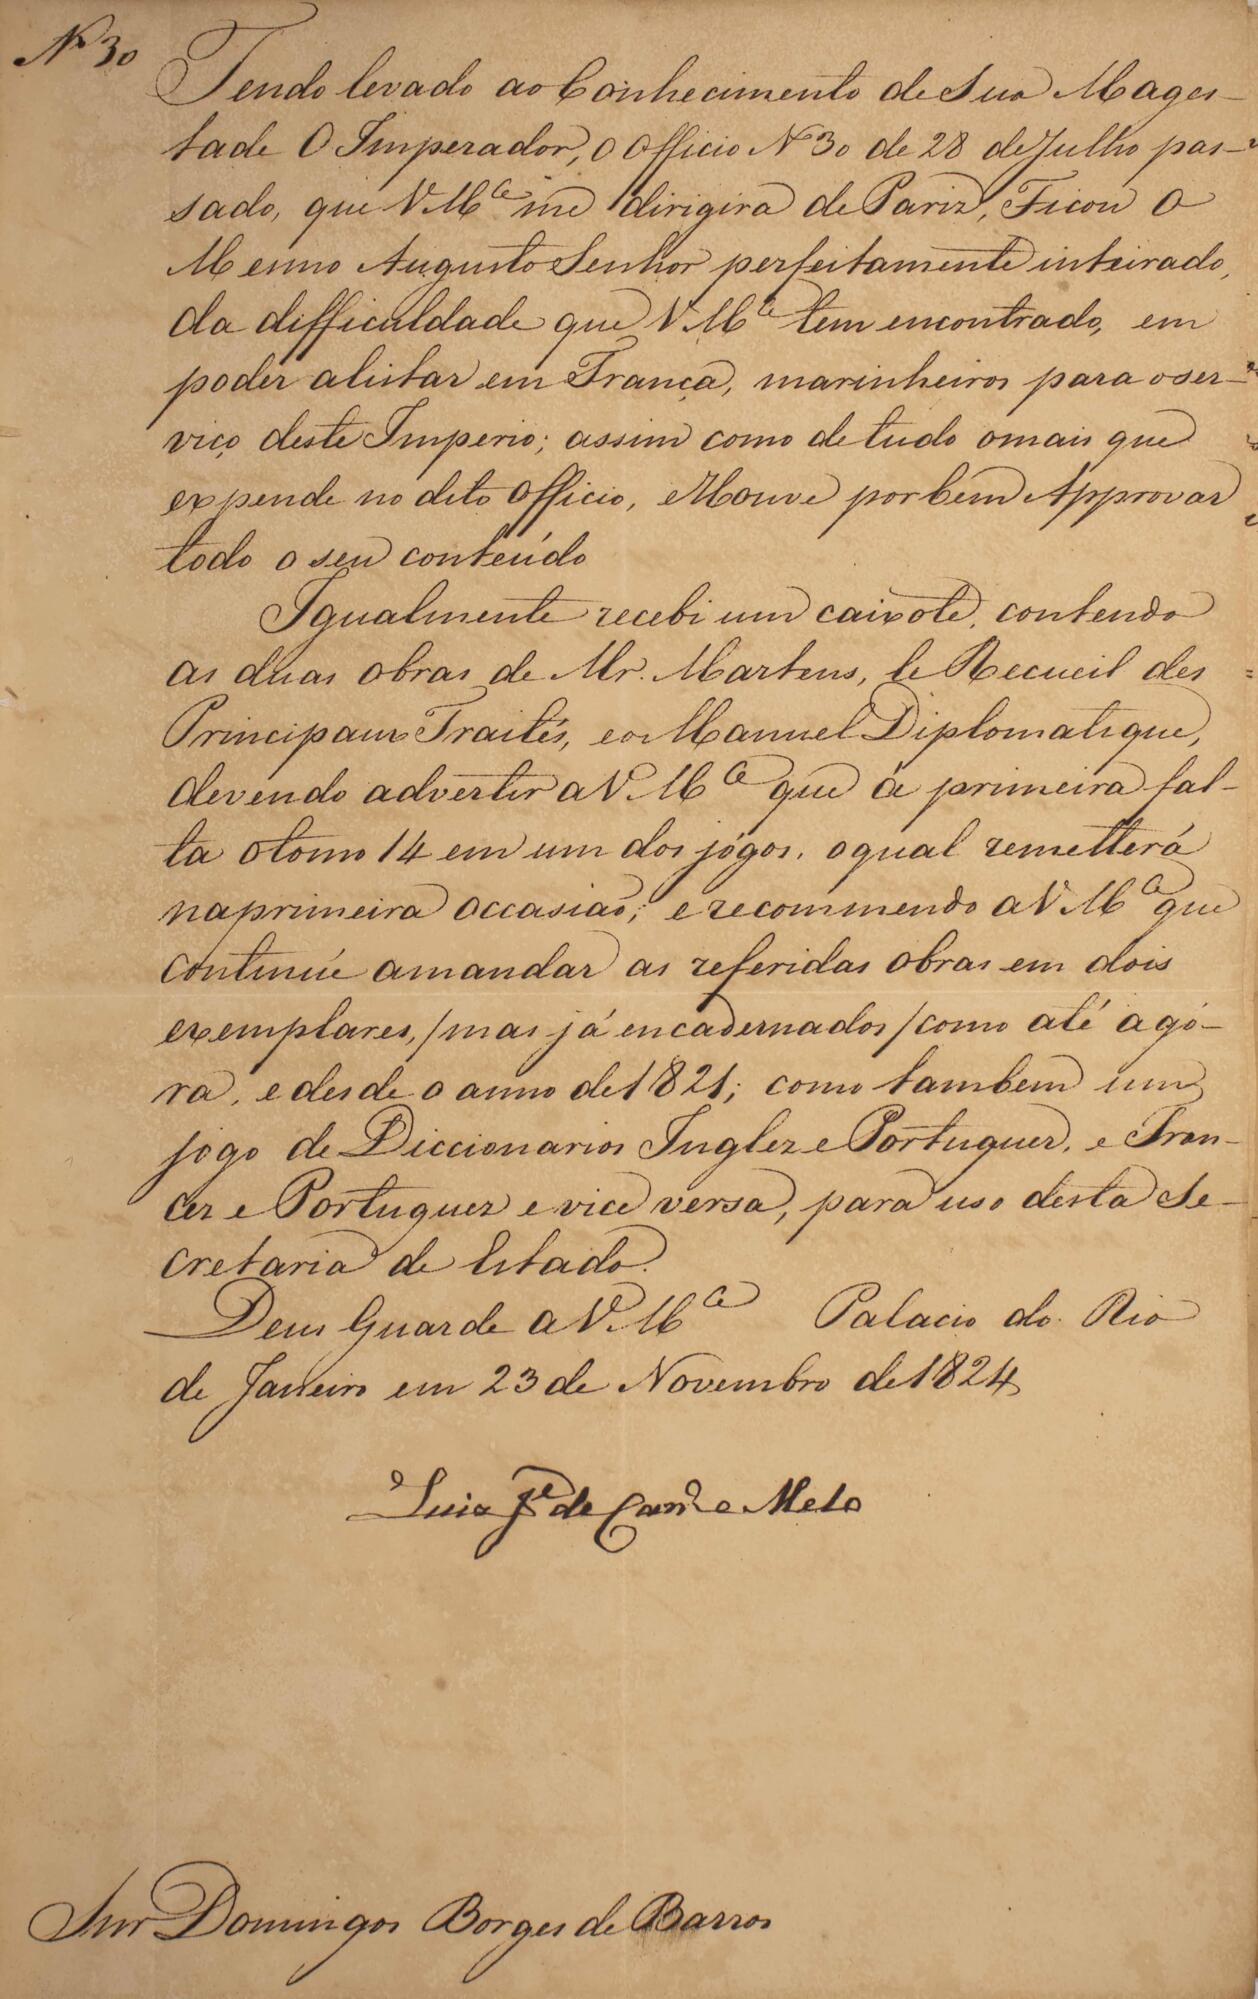 Nº 30
Tendo levado ao Conhecimento de Sua Mages-
tade O Imperador, o Officio Nº 30 de 28 de Julho pas-
sado, que V. M.ce me dirigira de Pariz, Ficou O
Mesmo Augusto Senhor perfeitamente inteirado,
da difficuldade que V. M.ce tem encontrado, em
poder alistar em França, marinheiros para o ser-
viço deste Imperio; assim como de tudo o mais que
expende no dito Officio, e Houve por bem Approvar
todo o seu conteúdo
Igualmente recebi um caixote, contendo
as duas obras de Mr. Martens, le Recueil des
Principaux Traités, e o Manuel Diplomatique,
devendo advertir a V. M.ce que á primeira fal-
ta o tomo 14 em um dos jógos, o qual remetterá
na primeira occasião; e recommendo a V. M.ce que
continúe a mandar as referidas obras em dois
exemplares, /mas já encadernados/ como até agó-
ra, e desde o anno de 1821; como tambem um
jogo de Diccionarios Inglez e Portuguez, e Fran-
cez e Portuguez e vice versa, para uso desta Se-
cretaria de Estado.
Deus Guarde a V. M.ce Palacio do Rio
de Janeiro em 23 de Novembro de 1824
Luiz J.e de Carv.o e Mello
Snr Domingos Borges de Barros